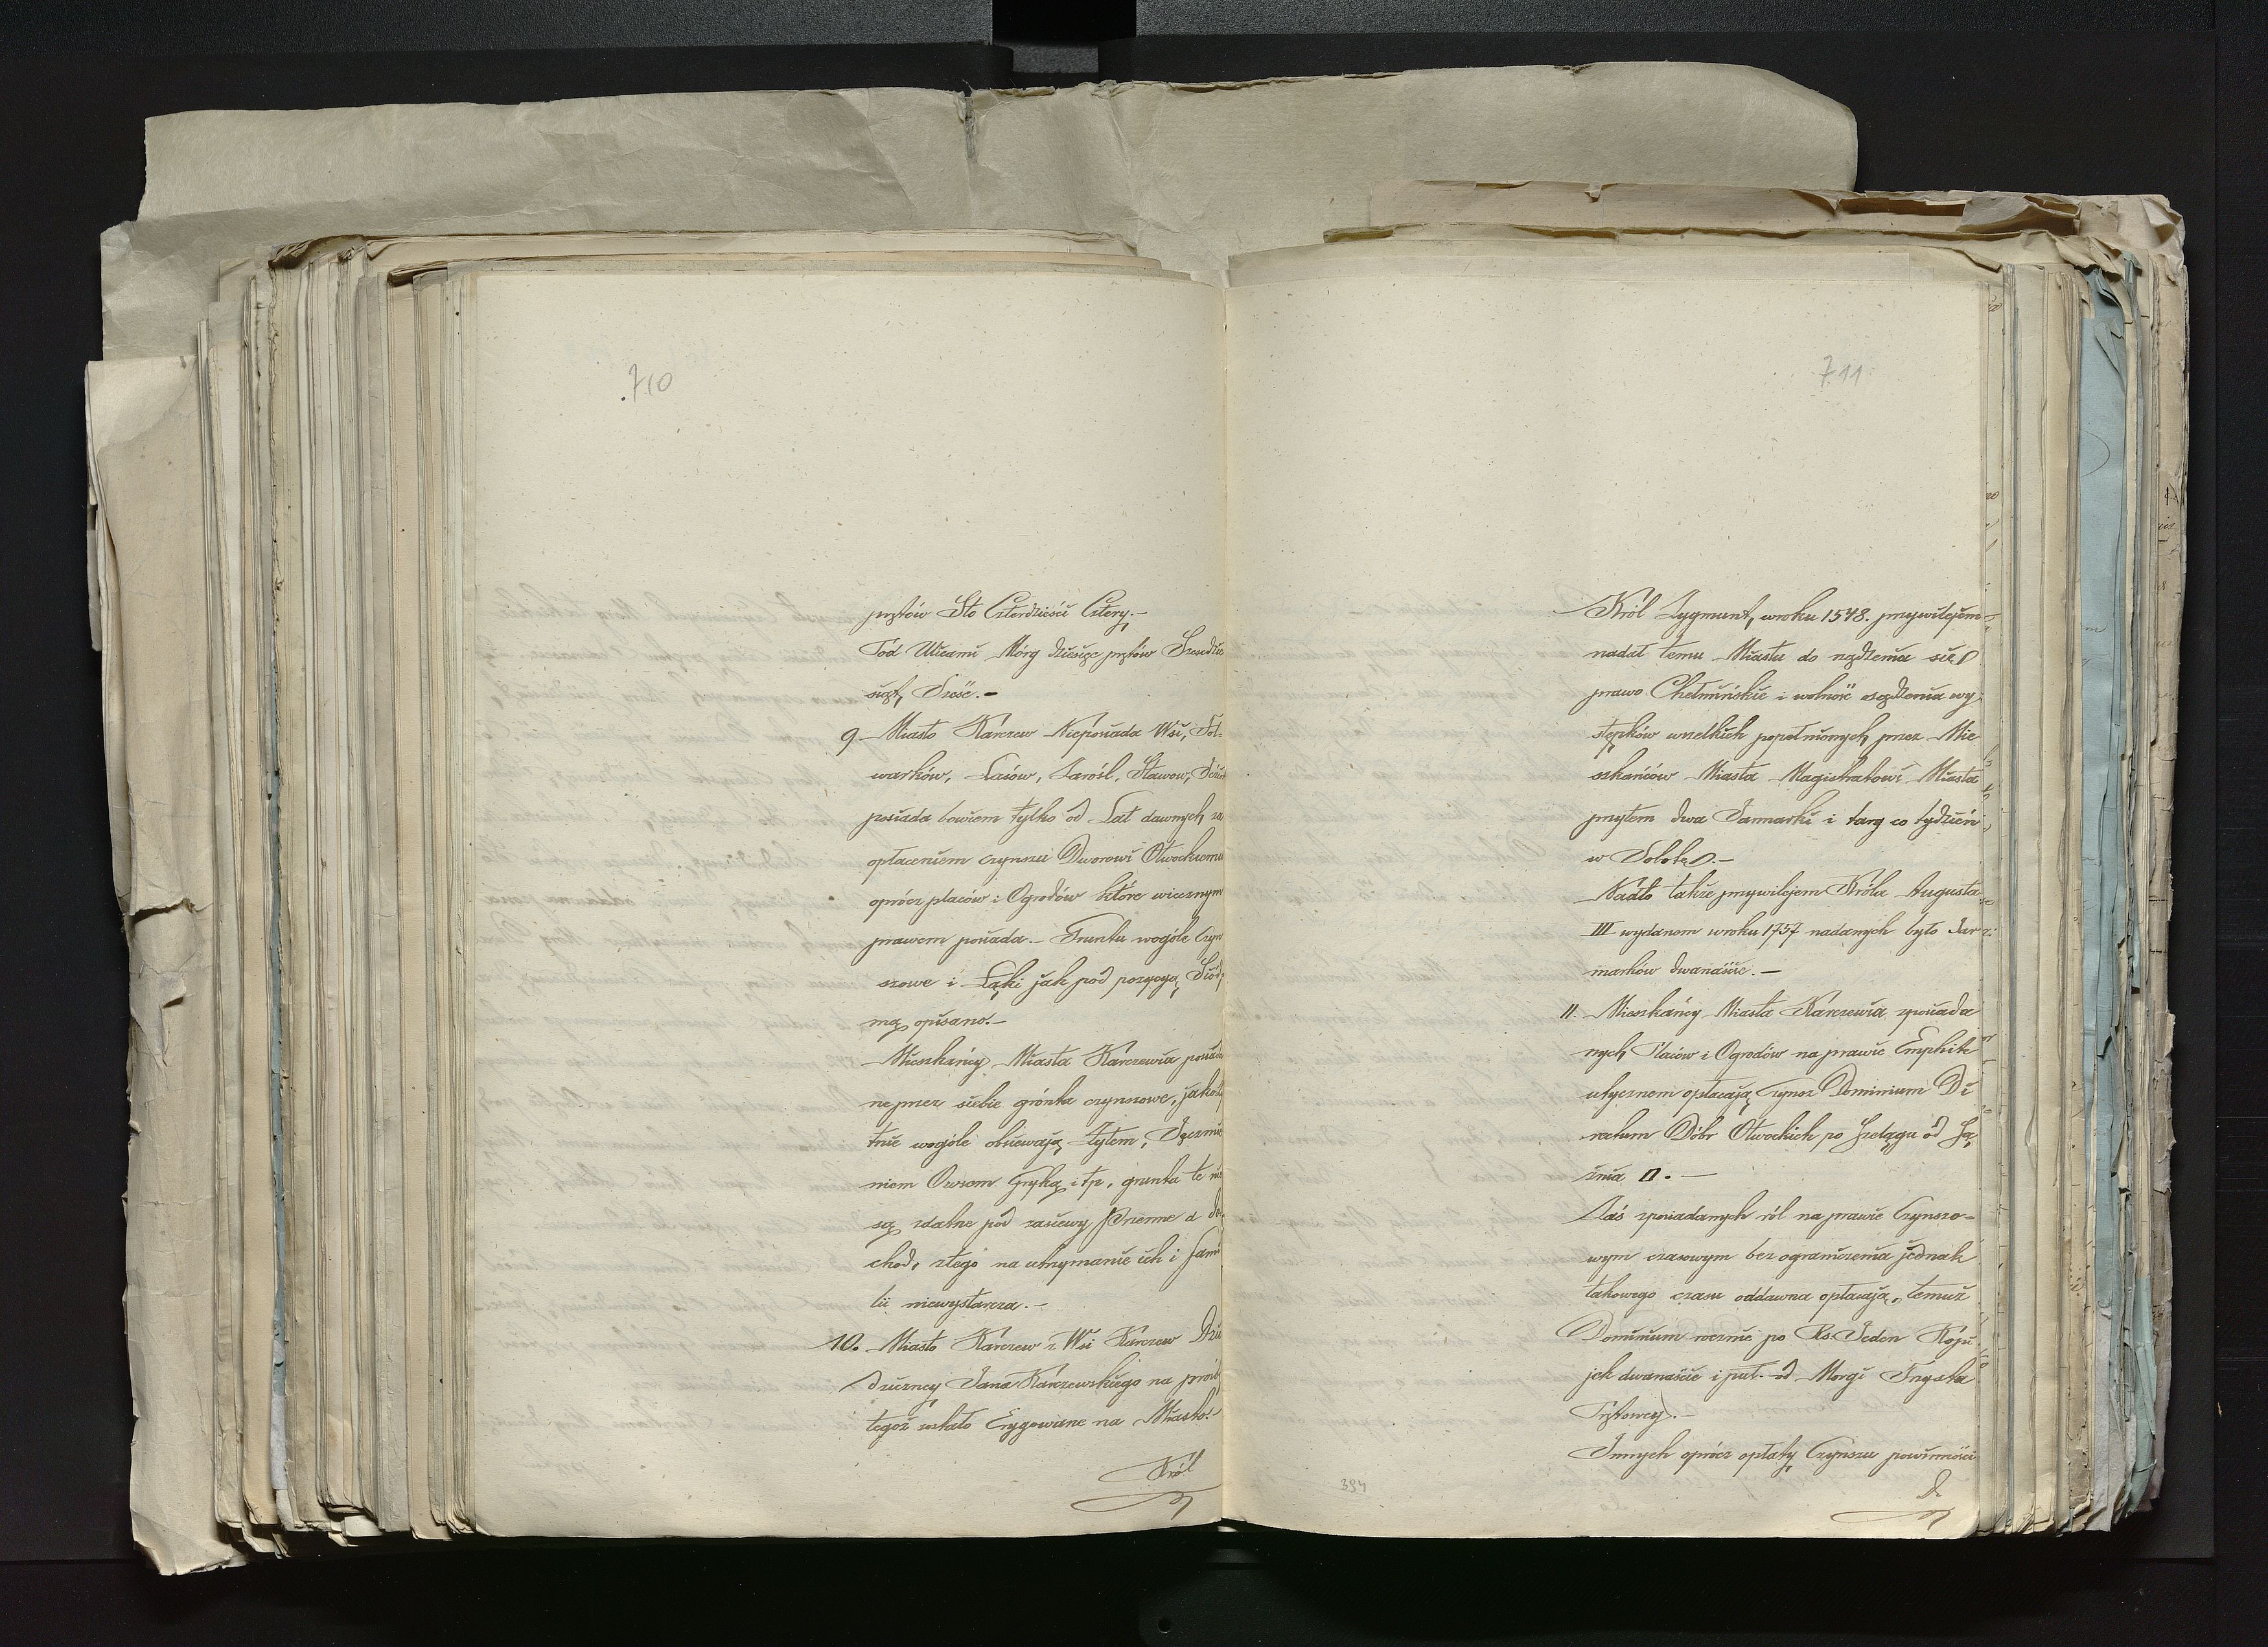 710
prętów Sto Czterdzieści Cztery.-
Pod Ulicami Mórg dziesięć prętów Sześćdzie
siąt, Sześć.-
9 Miasto Karczew Nieposiada Wsi, Fol-
warków, Lasów, Zarośl, Stawow,
posiada bowiem tylko od Lat dawnych za
opłaceniem czynszu Dworowi Otwockiemu
oprócz placów i Ogrodów które wiecznym
prawem posiada - Gruntu wogóle Czyn
szowe i Łąki jak pod pozycyą Siód
mą opisano.-
Mieszkańcy Miasta Karczewia posiada
ne przez siebie grónta czynszowe, jakoż
tnie wogóle obsiewają Żytem, Jęczmie
niem Owsem Gryką i tp, grunta te nie
są zdatne pod zasiewy Pszenne a do
chod, ztego na utrzymanie ich i fami
lii niewystarcza.-
10. Miasto Karczew z Wsi Karczew Dzie
dziczney Jana Karczewskiego na prośb
tegoż zostało Erygowane na Miasto.
Król
711
Król Zygmunt, wroku 1548. przywilejem
nadał temu Miastu do rządzenia się
prawo Chełmińskie i wolność osądzenia wy
stępków wszelkich popełnionych przez Mie
szkańców Miasta Magistratowi Miasta
przytem dwa Jarmarki i targ co tydzień
w Sobotę.-
Nadto także przywilejem Króla Augusta
III wydanem wroku 1757 nadanych było Jar
marków dwanaście.-
11. Mieszkańcy Miasta Karczewia zposiada
nych Placów i Ogrodów na prawie Emphite
utycznem opłacają Czynsz Dominium Di
rectum Dóbr Otwockich po szelągu od Są
żnia □.-
Zaś zposiadanych ról na prawie Czynszo-
wym czasowym bez ograniczenia jednak
takowego czasu oddawna opłacają, temuż
Dominium rocznie po Rs. Jeden Kopi
jek dwanaście i puł. od Morgi Trzysta
Prętowey.-
Innych oprócz opłaty Czynszu powinności
394